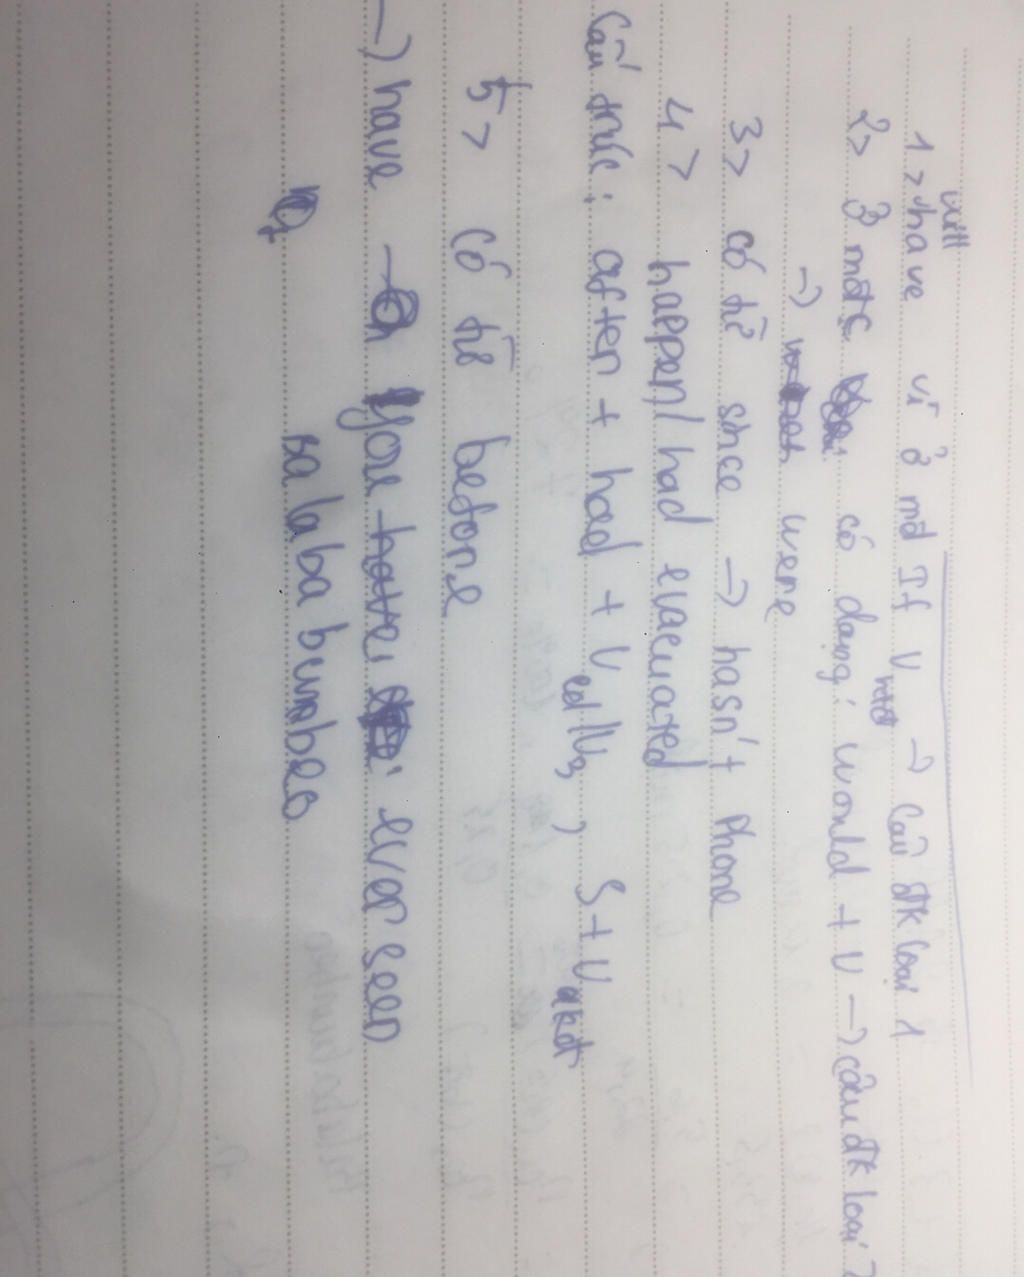 1> will have vì ở mđ If V → Câu đk loại 1
2> ở mđtc có dạng: would + V → câu đk loại 2
→ were
3> có từ since → hasn't phone
4> happen/had evacuated
Cấu trúc: after + had + Ved/V3, S + Vqkđ
5> có từ before
→) have you ever seen
ba laba bumbeo